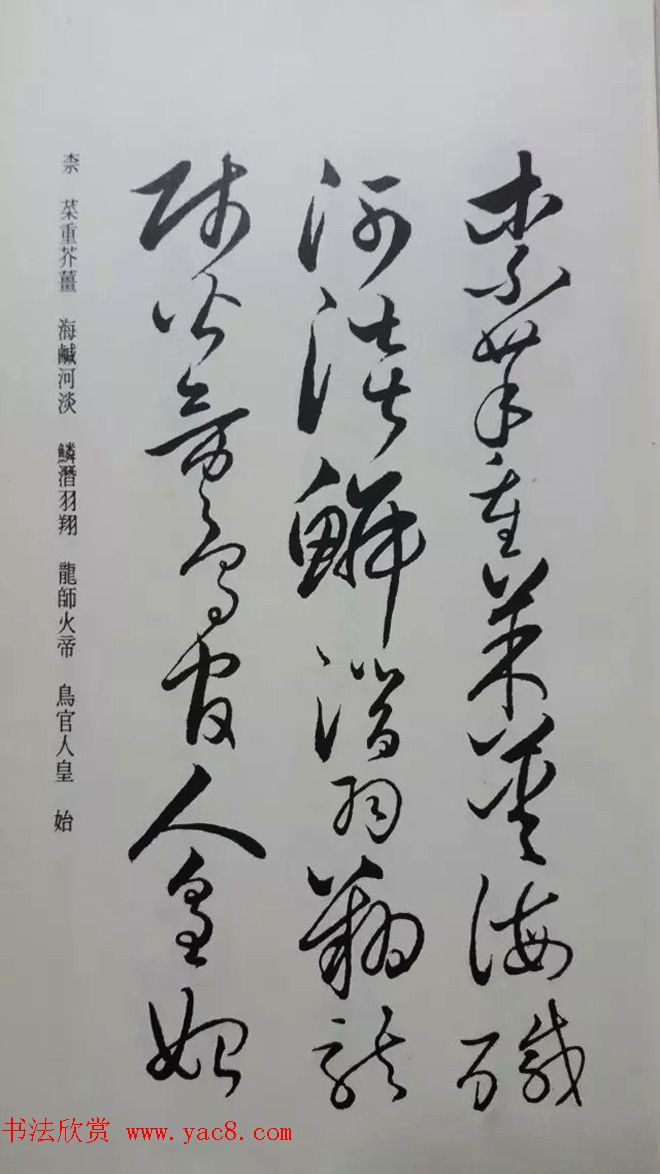 柰菜重芥薑海鹹
河淡鱗潛羽翔龍
師火帝鳥官人皇始
柰　菜重芥薑　海鹹河淡　鱗潛羽翔　龍師火帝　鳥官人皇　始
书法欣赏 www.yac8.com